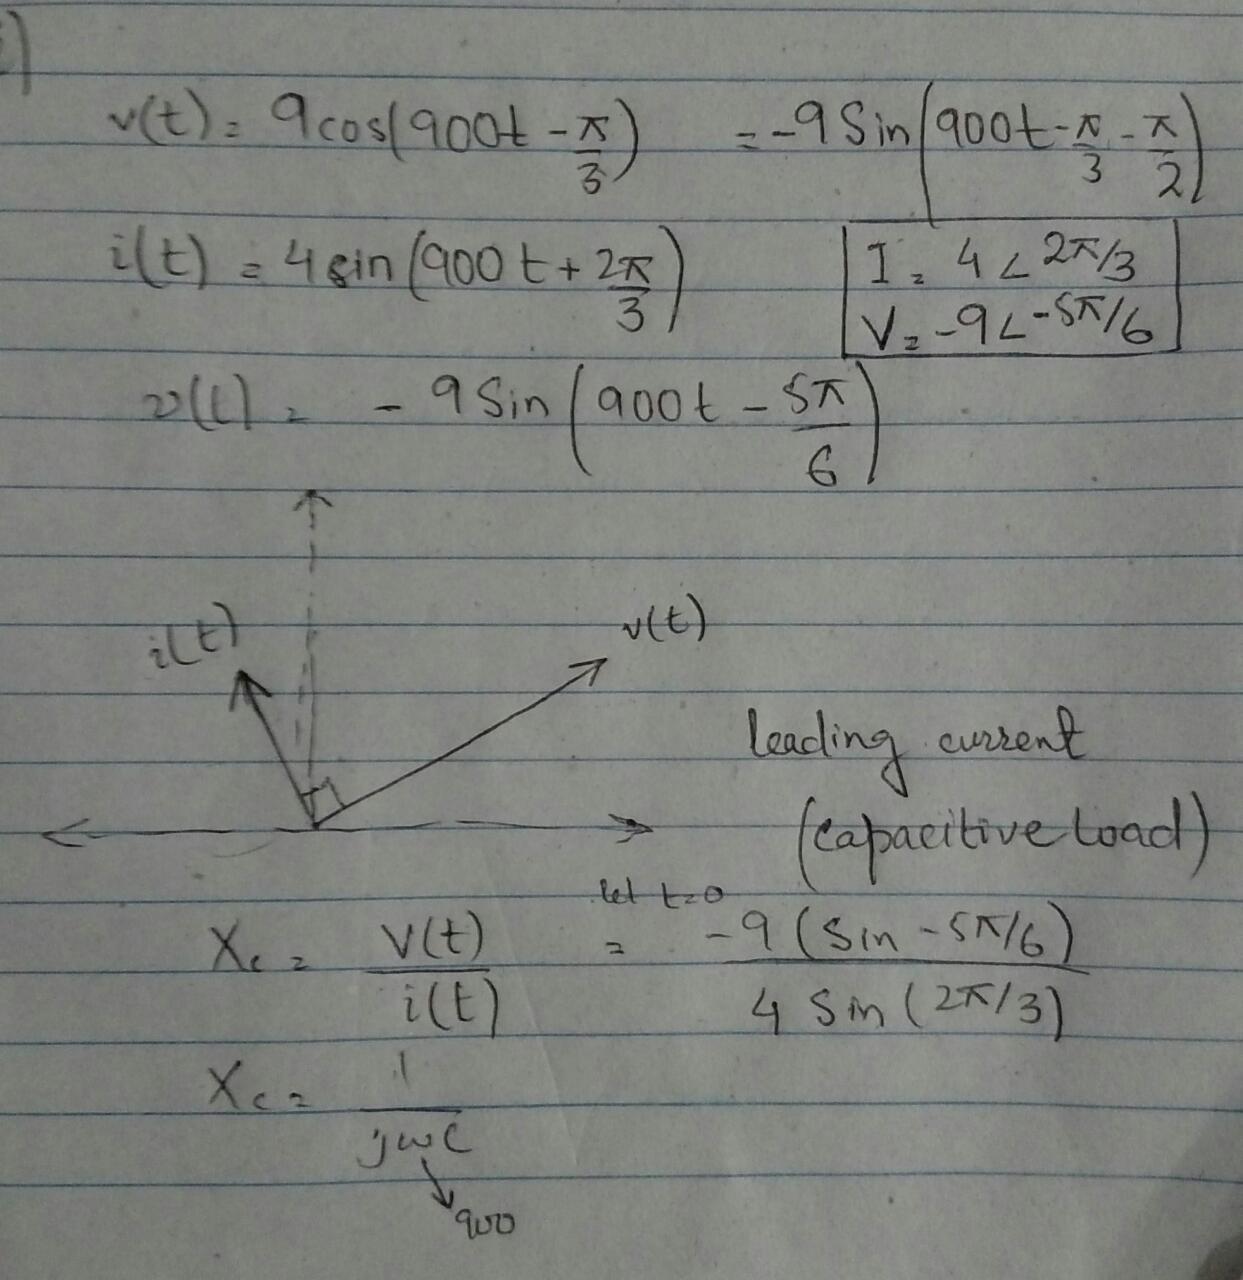 v(t) = 9cos(900t - π/3) = -9 Sin(900t - π/3 - π/2)
i(t) = 4 sin(900t + 2π/3)
I = 4 ∠ 2π/3
V = -9 ∠ -5π/6
v(t) = - 9 Sin(900t - 5π/6)
i(t)
v(t)
leading current
(capacitive load)
let t=0
Xc = V(t)/i(t) = -9 (Sin -5π/6)/4 Sin (2π/3)
Xc = 1/jwC
900